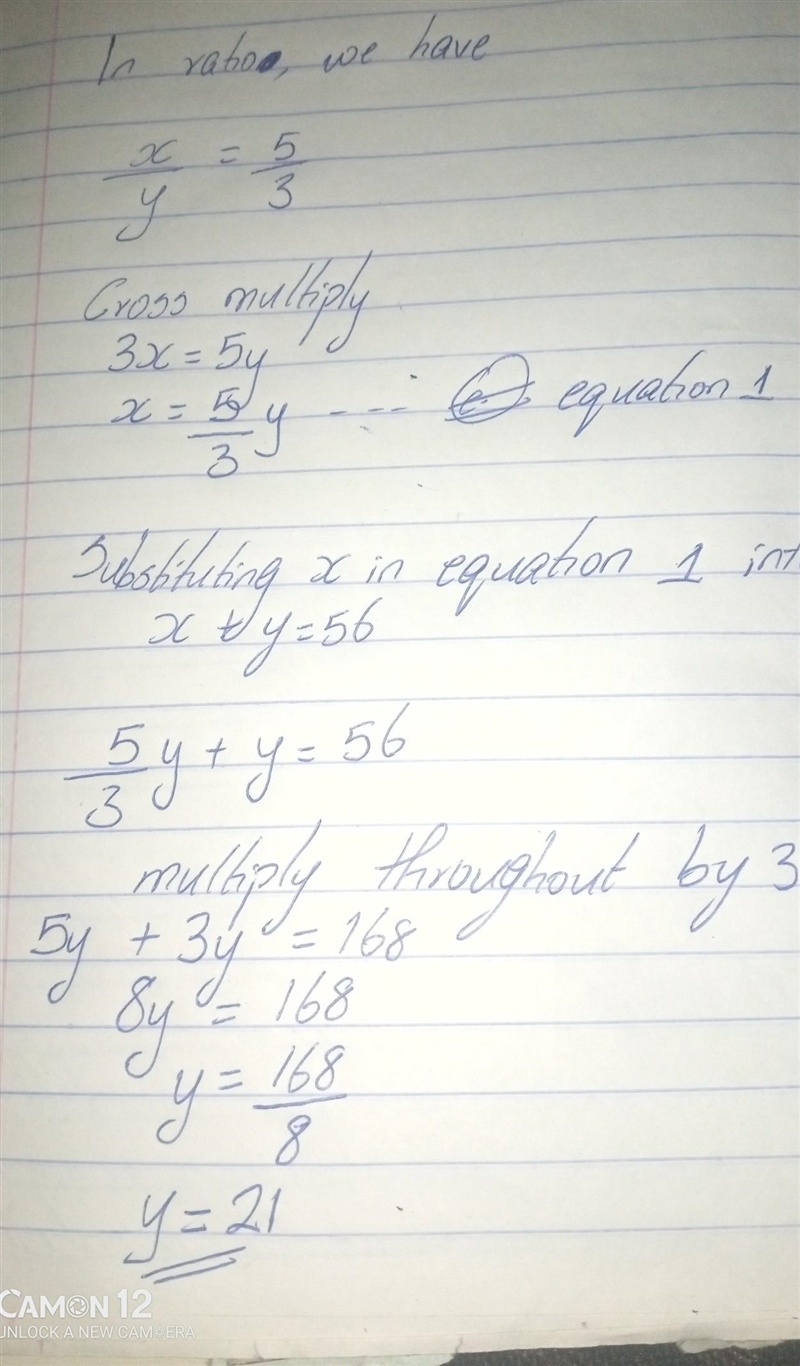 In ratio, we have
x/y = 5/3
Cross multiply
3x = 5y
x = 5/3 y ---- equation 1
Substituting x in equation 1 int
x + y = 56
5/3 y + y = 56
multiply throughout by 3
5y + 3y = 168
8y = 168
y = 168/8
y = 21
CAMON 12
UNLOCK A NEW CAMERA